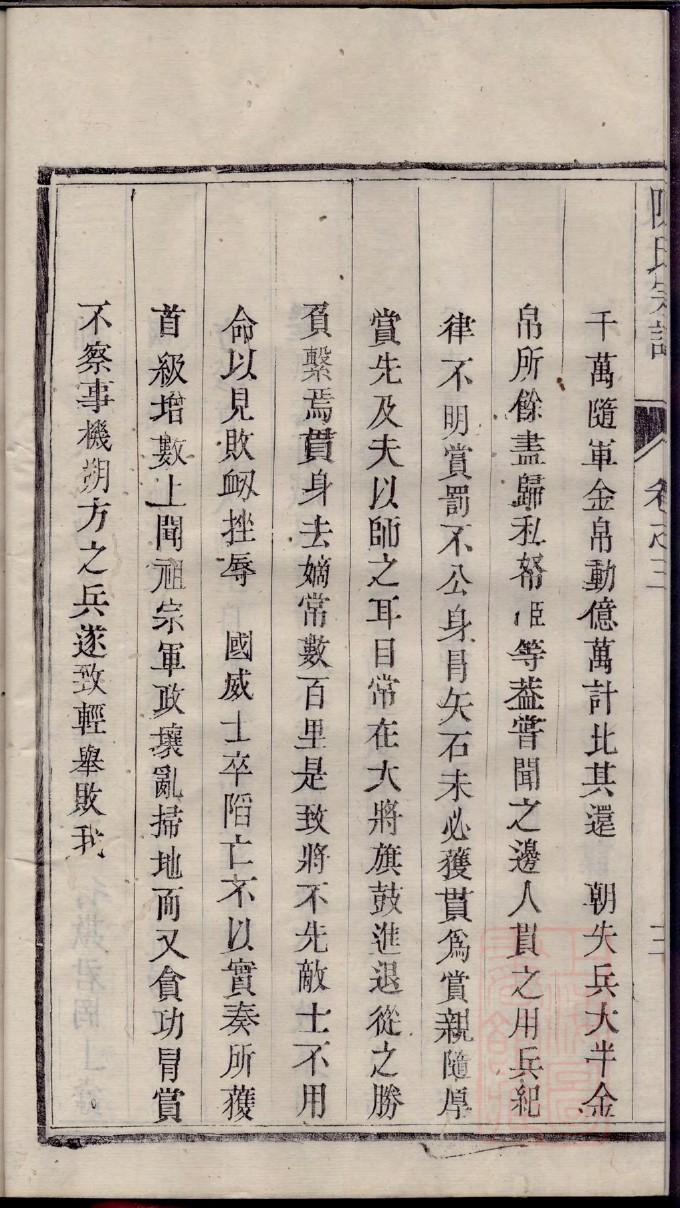 陳氏宗譜 卷之三 三
千萬隨軍金帛動億萬計比其還　朝失兵大半金
帛所餘盡歸私帑臣等葢嘗聞之邊人貫之用兵紀
律不明賞罰不公身冐矢石未必獲貫爲賞親隨厚
賞先及夫以師之耳目常在大將旗鼓進退從之勝
負繫焉貫身去嫡常數百里是致將不先敵士不用
命以見敗衂挫辱　國威士卒陷亡不以實奏所獲
首級增數上聞祖宗軍政壞亂掃地而又貪功冐賞
不察事機朔方之兵遂致輕舉敗我